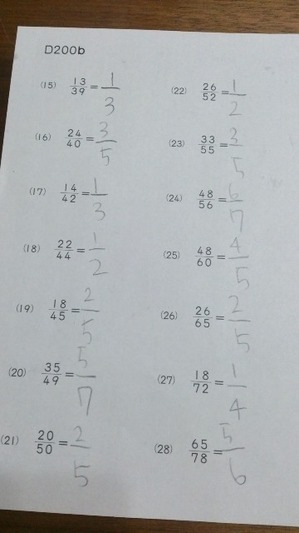 D200b
(15) 13/39 = 1/3
(16) 24/40 = 3/5
(17) 14/42 = 1/3
(18) 22/44 = 1/2
(19) 18/45 = 2/5
(20) 35/49 = 5/7
(21) 20/50 = 2/5
(22) 26/52 = 1/2
(23) 33/55 = 3/5
(24) 48/56 = 6/7
(25) 48/60 = 4/5
(26) 26/65 = 2/5
(27) 18/72 = 1/4
(28) 65/78 = 5/6